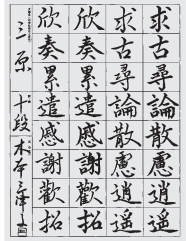 求古尋論散慮逍遥
求古尋論散慮逍遥
欣奏累遣感謝歡招
欣奏累遣感謝歡招
三原 十段 木本三津